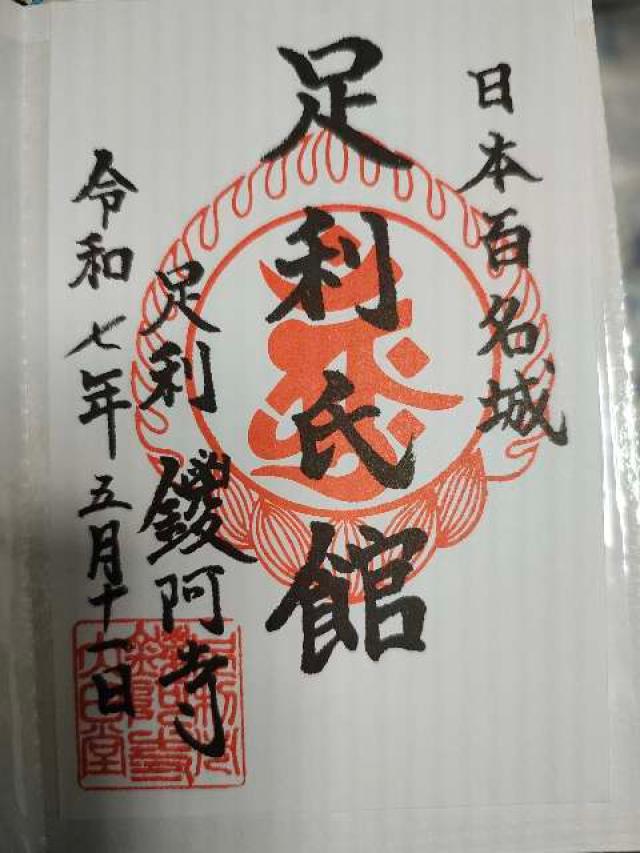 日本百名城
足利氏館
足利 鑁阿寺
令和七年五月十一日